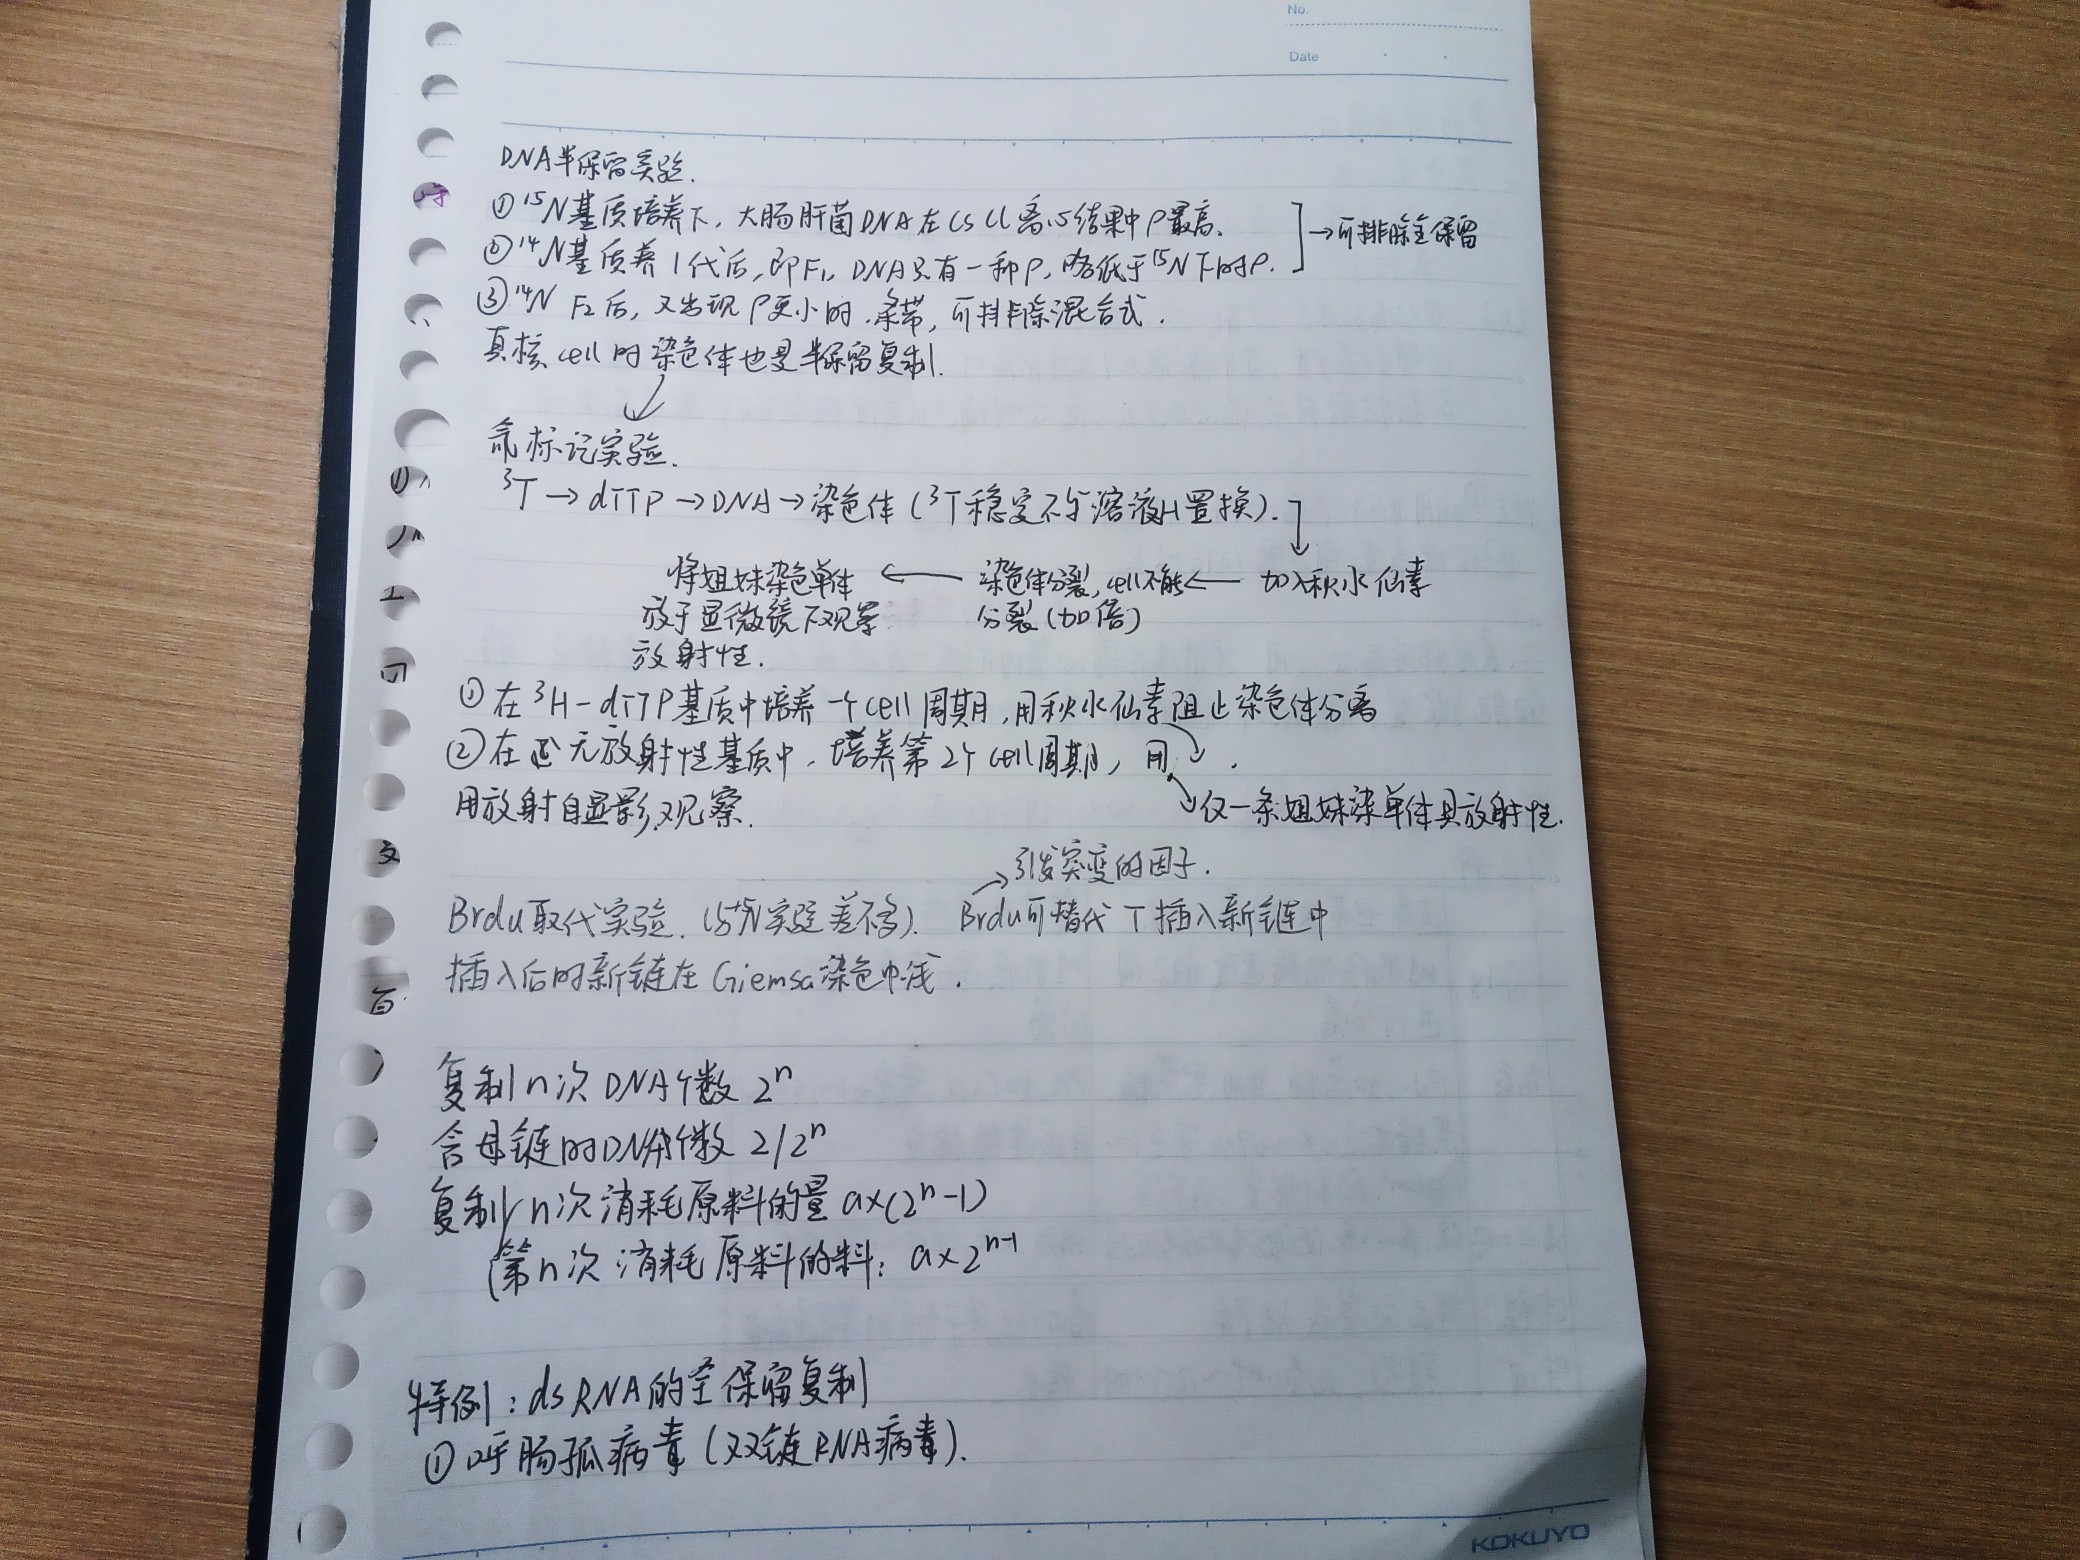 No.
Date
DNA半保留实验.
① ¹⁵N基质培养下，大肠肝菌DNA在CsCl离心结果中ρ最高.
② ¹⁴N基质养1代后，即F₁，DNA只有一种ρ，略低于¹⁵N下的ρ. →可排除全保留
③ ¹⁴N F₂后，又出现ρ更小的.条带，可排除混合式.
真核cell的染色体也是半保留复制.
氚标记实验.
³T→dTTP→DNA→染色体（³T稳定不与溶液H置换）.
加入秋水仙素
染色体分裂，cell不能
分裂（加倍）
将姐妹染色单体
放于显微镜下观察
放射性.
①在³H-dTTP基质中培养一个cell周期，用秋水仙素阻止染色体分离
②在无放射性基质中，培养第2个cell周期，用 .
用放射自显影观察.
仅一条姐妹染单体具放射性.
引发突变的因子.
Brdu取代实验.（与¹⁵N实验差不多）. Brdu可替代T插入新链中
插入后的新链在Giemsa染色中浅.
复制n次DNA个数 2ⁿ
含母链的DNA个数 2/2ⁿ
复制n次消耗原料的量 a×(2ⁿ-1)
第n次消耗原料的料：a×2ⁿ⁻¹
特例：dsRNA的全保留复制
①呼肠孤病毒（双链RNA病毒）.
KOKUYO